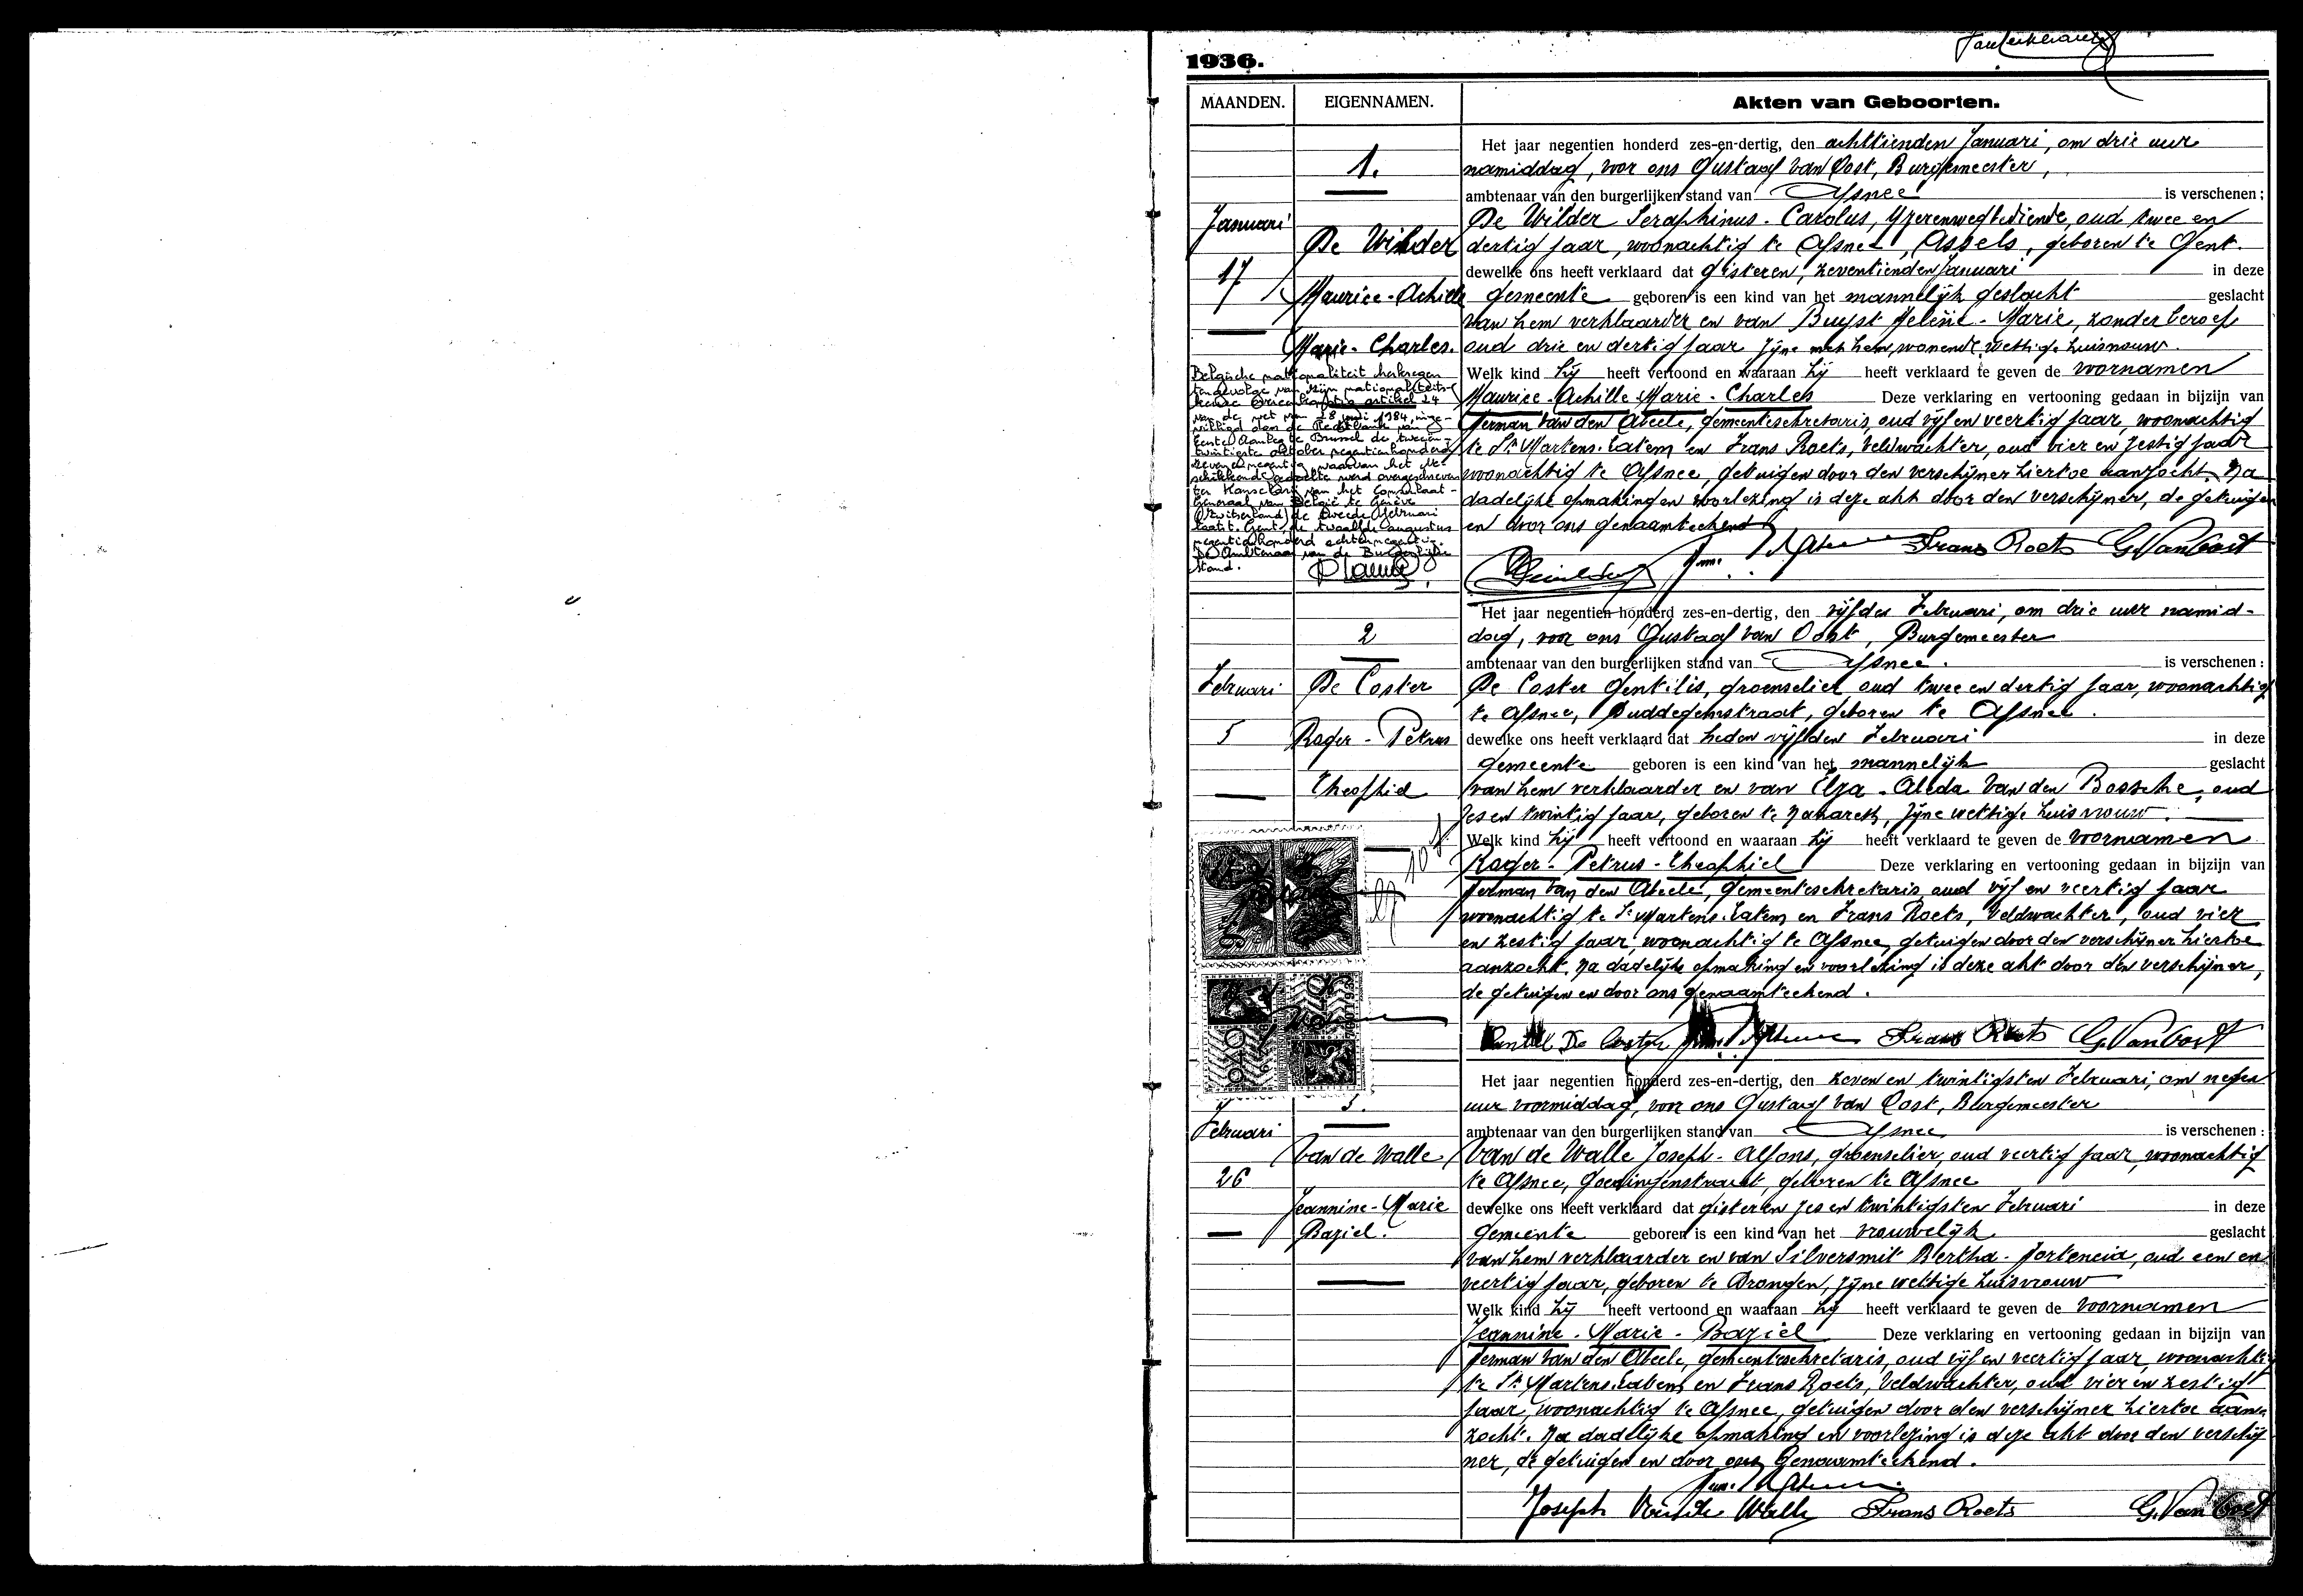 1936.
MAANDEN. EIGENNAMEN. Akten van Geboorten.
1.
Januari
17
De Wilder
Maurice-Achille
Marie-Charles.
Belgische nationaliteit herkregen
tengevolge van zijn nationaliteits-
keuze overeenkomstig artikel 24
van de wet van 28 juni 1984, inge-
willigd door de Rechtbank van
Eerste Aanleg te Brussel de tweeën-
twintigste oktober negentienhonderd
zevenennegentig, waarvan het be-
schikkende gedeelte werd overgeschreven
ter Kanselarij van het Consulaat-
Generaal van België te Genève
(Zwitserland) de tweede februari
laatst. Gent, de twaalfde augustus
negentienhonderd achtennegentig.
De Ambtenaar van de Burgerlijke
Stand.
Het jaar negentien honderd zes-en-dertig, den achttienden Januari, om drie uur
namiddag, voor ons Gustaaf Van Oost, Burgemeester,
ambtenaar van den burgerlijken stand van Afsnee is verschenen:
De Wilder Seraphinus-Carolus, Yzerenwegbediende, oud twee en
dertig jaar, woonachtig te Afsnee, Assels, geboren te Gent.
dewelke ons heeft verklaard dat gisteren, zeventienden Januari in deze
gemeente geboren is een kind van het mannelijk geslacht geslacht
van hem verklaarder en van Buyst Helène-Marie, zonder beroep
oud drie en dertig jaar zyne met hem wonende wettige huisvrouw.
Welk kind hij heeft vertoond en waaraan hij heeft verklaard te geven de voornamen
Maurice-Achille Marie-Charles Deze verklaring en vertooning gedaan in bijzijn van
Herman Van den Abeele, gemeentesekretaris, oud vijf en veertig jaar, woonachtig
te St Martens-Latem en Frans Roets, Veldwachter, oud vier en zestig jaar
woonachtig te Afsnee, getuigen door den verschijner hiertoe aanzocht. Na
dadelijke opmaking en voorlezing is deze akt door den verschijner, de getuigen
en door ons genaamteekend
Frans Roets G. Van Oost
2
Februari
5
De Coster
Roger-Petrus
Theophiel
Het jaar negentien honderd zes-en-dertig, den vijfden Februari, om drie uur namid-
dag, voor ons Gustaaf Van Oost, Burgemeester
ambtenaar van den burgerlijken stand van Afsnee. is verschenen:
De Coster Gentilis, groenselier, oud twee en dertig jaar, woonachtig
te Afsnee, Duddegemstraat, geboren te Afsnee.
dewelke ons heeft verklaard dat heden vijfden Februari in deze
gemeente geboren is een kind van het mannelijk geslacht
van hem verklaarder en van Elza-Alida Van den Bossche, oud
zes en twintig jaar, geboren te Nazareth, zijne wettige huisvrouw.
Welk kind hij heeft vertoond en waaraan hij heeft verklaard te geven de voornamen
Roger-Petrus-Theophiel Deze verklaring en vertooning gedaan in bijzijn van
Herman Van den Abeele, gemeentesekretaris, oud vijf en veertig jaar
woonachtig te St Martens-Latem en Frans Roets, Veldwachter, oud vier
en zestig jaar, woonachtig te Afsnee, getuigen door den verschijner hiertoe
aanzocht. Na dadelijke opmaking en voorlezing is deze akt door den verschijner,
de getuigen en door ons genaamteekend.
Gentiel De Coster Frans Roets G. Van Oost
3.
Februari
26
Van de Walle
Jeannine-Marie
Baziel.
Het jaar negentien honderd zes-en-dertig, den zeven en twintigsten Februari, om negen
uur voormiddag, voor ons Gustaaf Van Oost, Burgemeester
ambtenaar van den burgerlijken stand van Afsnee is verschenen:
Van de Walle Joseph-Alfons, groenselier, oud veertig jaar, woonachtig
te Afsnee, Goedingenstraat, geboren te Afsnee
dewelke ons heeft verklaard dat gisteren zes en twintigsten Februari in deze
gemeente geboren is een kind van het vrouwelijk geslacht
van hem verklaarder en van Silversmit Bertha-Hortencia, oud een en
veertig jaar, geboren te Drongen, zijne wettige huisvrouw
Welk kind hij heeft vertoond en waaraan hij heeft verklaard te geven de voornamen
Jeannine-Marie-Baziel Deze verklaring en vertooning gedaan in bijzijn van
Herman Van den Abeele, gemeentesekretaris, oud vijf en veertig jaar, woonachtig
te St Martens-Latem en Frans Roets, Veldwachter, oud vier en zestig
jaar, woonachtig te Afsnee, getuigen door den verschijner hiertoe aan-
zocht. Na dadelijke opmaking en voorlezing is deze akt door den verschij
ner, de getuigen en door ons genaamteekend.
Joseph Van de Walle Frans Roets G. Van Oost